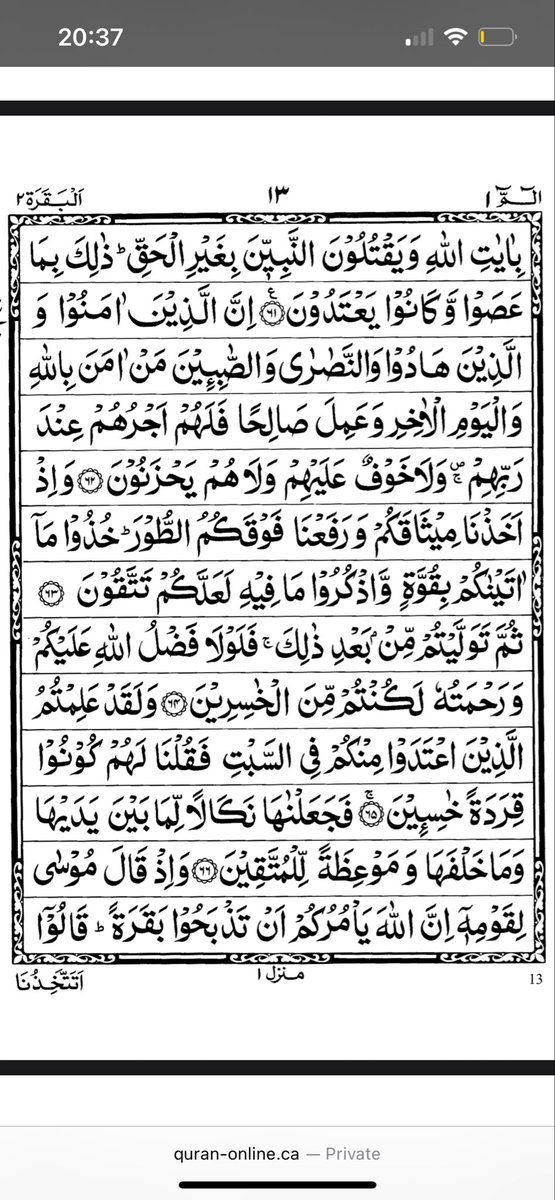 20:37
الٓـمّٓ ١ ١٣ اَلْبَقَرَة ٢
بِاٰيٰتِ اللّٰهِ وَيَقْتُلُوْنَ النَّبِيّٖنَ بِغَيْرِ الْحَقِّ ؕ ذٰلِكَ بِمَا
عَصَوْا وَّكَانُوْا يَعْتَدُوْنَ ﴿٦١﴾ ع اِنَّ الَّذِيْنَ اٰمَنُوْا وَ
الَّذِيْنَ هَادُوْا وَالنَّصٰرٰى وَالصّٰبِـِٕيْنَ مَنْ اٰمَنَ بِاللّٰهِ
وَالْيَوْمِ الْاٰخِرِ وَعَمِلَ صَالِحًا فَلَهُمْ اَجْرُهُمْ عِنْدَ
رَبِّهِمْ ۪ۚ وَلَا خَوْفٌ عَلَيْهِمْ وَلَا هُمْ يَحْزَنُوْنَ ﴿٦٢﴾ وَاِذْ
اَخَذْنَا مِيْثَاقَكُمْ وَرَفَعْنَا فَوْقَكُمُ الطُّوْرَ ؕ خُذُوْا مَآ
اٰتَيْنٰكُمْ بِقُوَّةٍ وَّاذْكُرُوْا مَا فِيْهِ لَعَلَّكُمْ تَتَّقُوْنَ ﴿٦٣﴾
ثُمَّ تَوَلَّيْتُمْ مِّنْۢ بَعْدِ ذٰلِكَ ۚ فَلَوْلَا فَضْلُ اللّٰهِ عَلَيْكُمْ
وَرَحْمَتُهٗ لَكُنْتُمْ مِّنَ الْخٰسِرِيْنَ ﴿٦٤﴾ وَلَقَدْ عَلِمْتُمُ
الَّذِيْنَ اعْتَدَوْا مِنْكُمْ فِى السَّبْتِ فَقُلْنَا لَهُمْ كُوْنُوْا
قِرَدَةً خٰسِـِٕيْنَ ۚ﴿٦٥﴾ فَجَعَلْنٰهَا نَكَالًا لِّمَا بَيْنَ يَدَيْهَا
وَمَا خَلْفَهَا وَمَوْعِظَةً لِّلْمُتَّقِيْنَ ﴿٦٦﴾ وَاِذْ قَالَ مُوْسٰى
لِقَوْمِهٖٓ اِنَّ اللّٰهَ يَاْمُرُكُمْ اَنْ تَذْبَحُوْا بَقَرَةً ؕ قَالُوْٓا
13 منزل ١ اَتَتَّخِذُنَا
quran-online.ca — Private